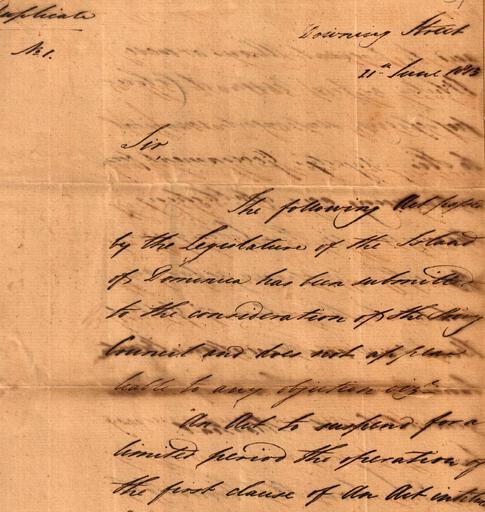 Duplicate
No. 1.
Downing Street
21st June
Sir,
The following Act
by the Legislature of the Island
of Dominica has been submitted
to the consideration of the King
Council and does not appear
liable to any objection vizt.
An Act to suspend for a
limited period the operation of
the first clause of An Act